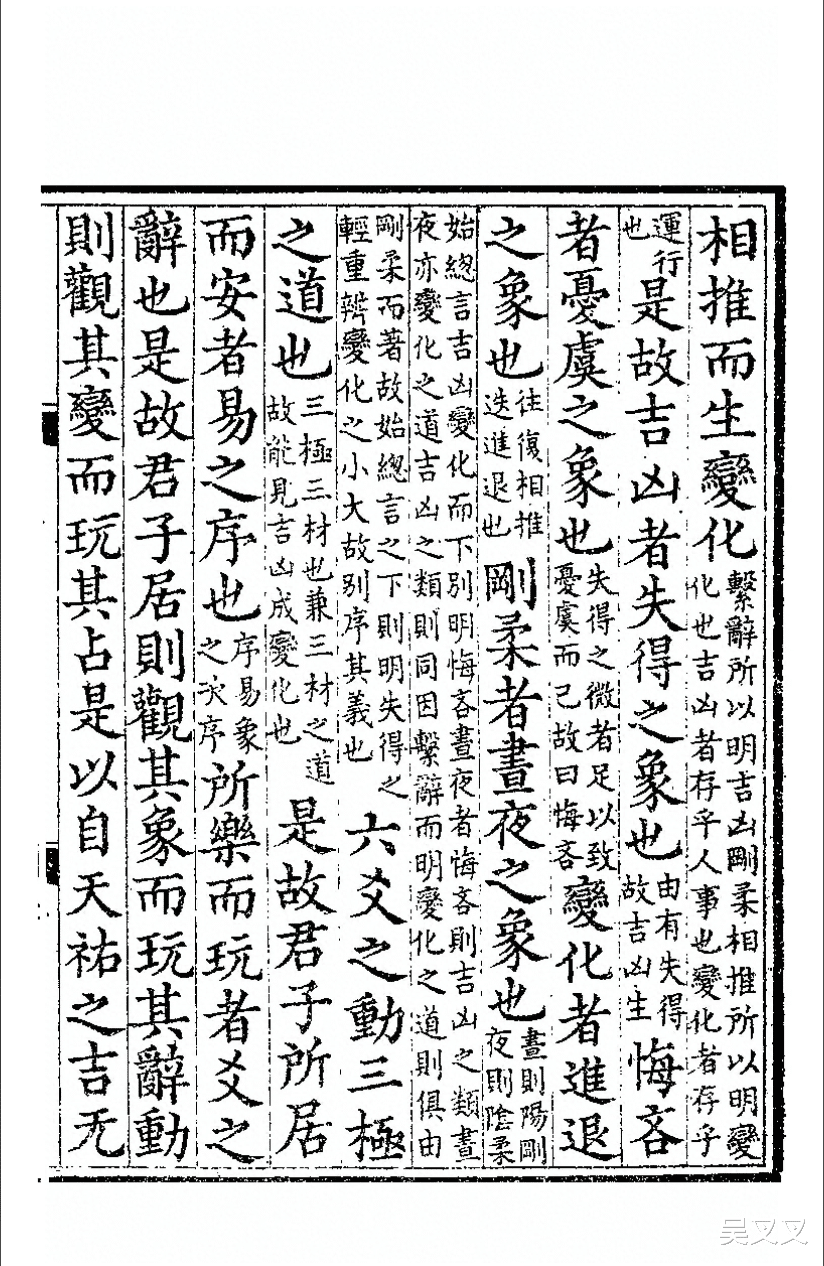 相推而生變化繫辭所以明吉凶剛柔相推所以明變化也吉凶者存乎人事也變化者存乎
運行也是故吉凶者失得之象也由有失得故吉凶生悔吝
者憂虞之象也失得之微者足以致憂虞而已故曰悔吝變化者進退
之象也往復相推迭進退也剛柔者晝夜之象也晝則陽剛夜則陰柔
始總言吉凶變化而下別明悔吝晝夜者悔吝則吉凶之類晝夜亦變化之道吉凶之類則同因繫辭而明變化之道則俱由
剛柔而著故始總言之下則明失得之輕重辨變化之小大故別序其義也六爻之動三極
之道也三極三材也兼三材之道故能見吉凶成變化也是故君子所居
而安者易之序也序易象之次序所樂而玩者爻之
辭也是故君子居則觀其象而玩其辭動
則觀其變而玩其占是以自天祐之吉无
吴叉叉